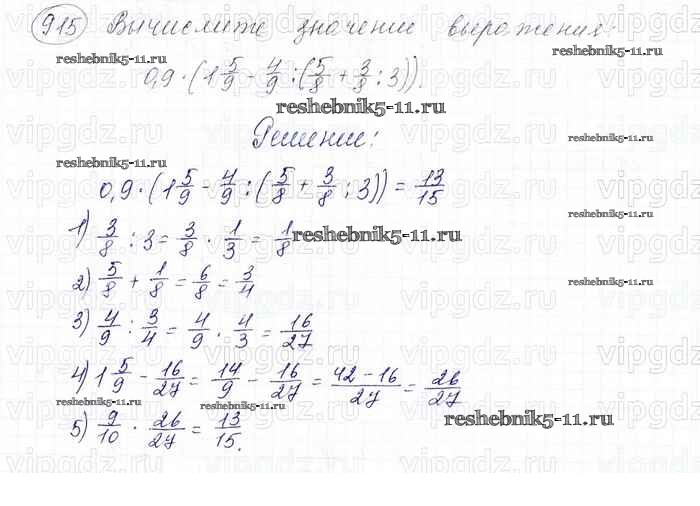 915 Вычислите значение выражения:
reshebnik5-11.ru
reshebnik5-11.ru
0,9·(1 5/9 - 4/9 : (5/8 + 3/8 : 3)).
reshebnik5-11.ru
Решение:
reshebnik5-11.ru
reshebnik5-11.ru
0,9·(1 5/9 - 4/9 : (5/8 + 3/8 : 3)) = 13/15
reshebnik5-11.ru
1) 3/8 : 3 = 3/8 · 1/3 = 1/8
reshebnik5-11.ru
2) 5/8 + 1/8 = 6/8 = 3/4
reshebnik5-11.ru
3) 4/9 : 3/4 = 4/9 · 4/3 = 16/27
4) 1 5/9 - 16/27 = 14/9 - 16/27 = (42-16)/27 = 26/27
reshebnik5-11.ru
reshebnik5-11.ru
reshebnik5-11.ru
5) 9/10 · 26/27 = 13/15.
vipgdz.ru